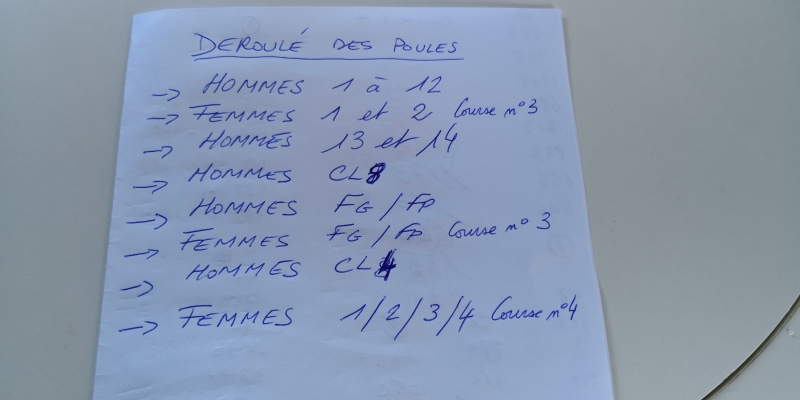 DEROULÉ DES POULES
→ HOMMES 1 à 12
→ FEMMES 1 et 2 Course n°3
→ HOMMES 13 et 14
→ HOMMES CL8
→ HOMMES FG/FP
→ FEMMES FG/FP Course n° 3
→ HOMMES CL4
→ FEMMES 1/2/3/4 Course n°4